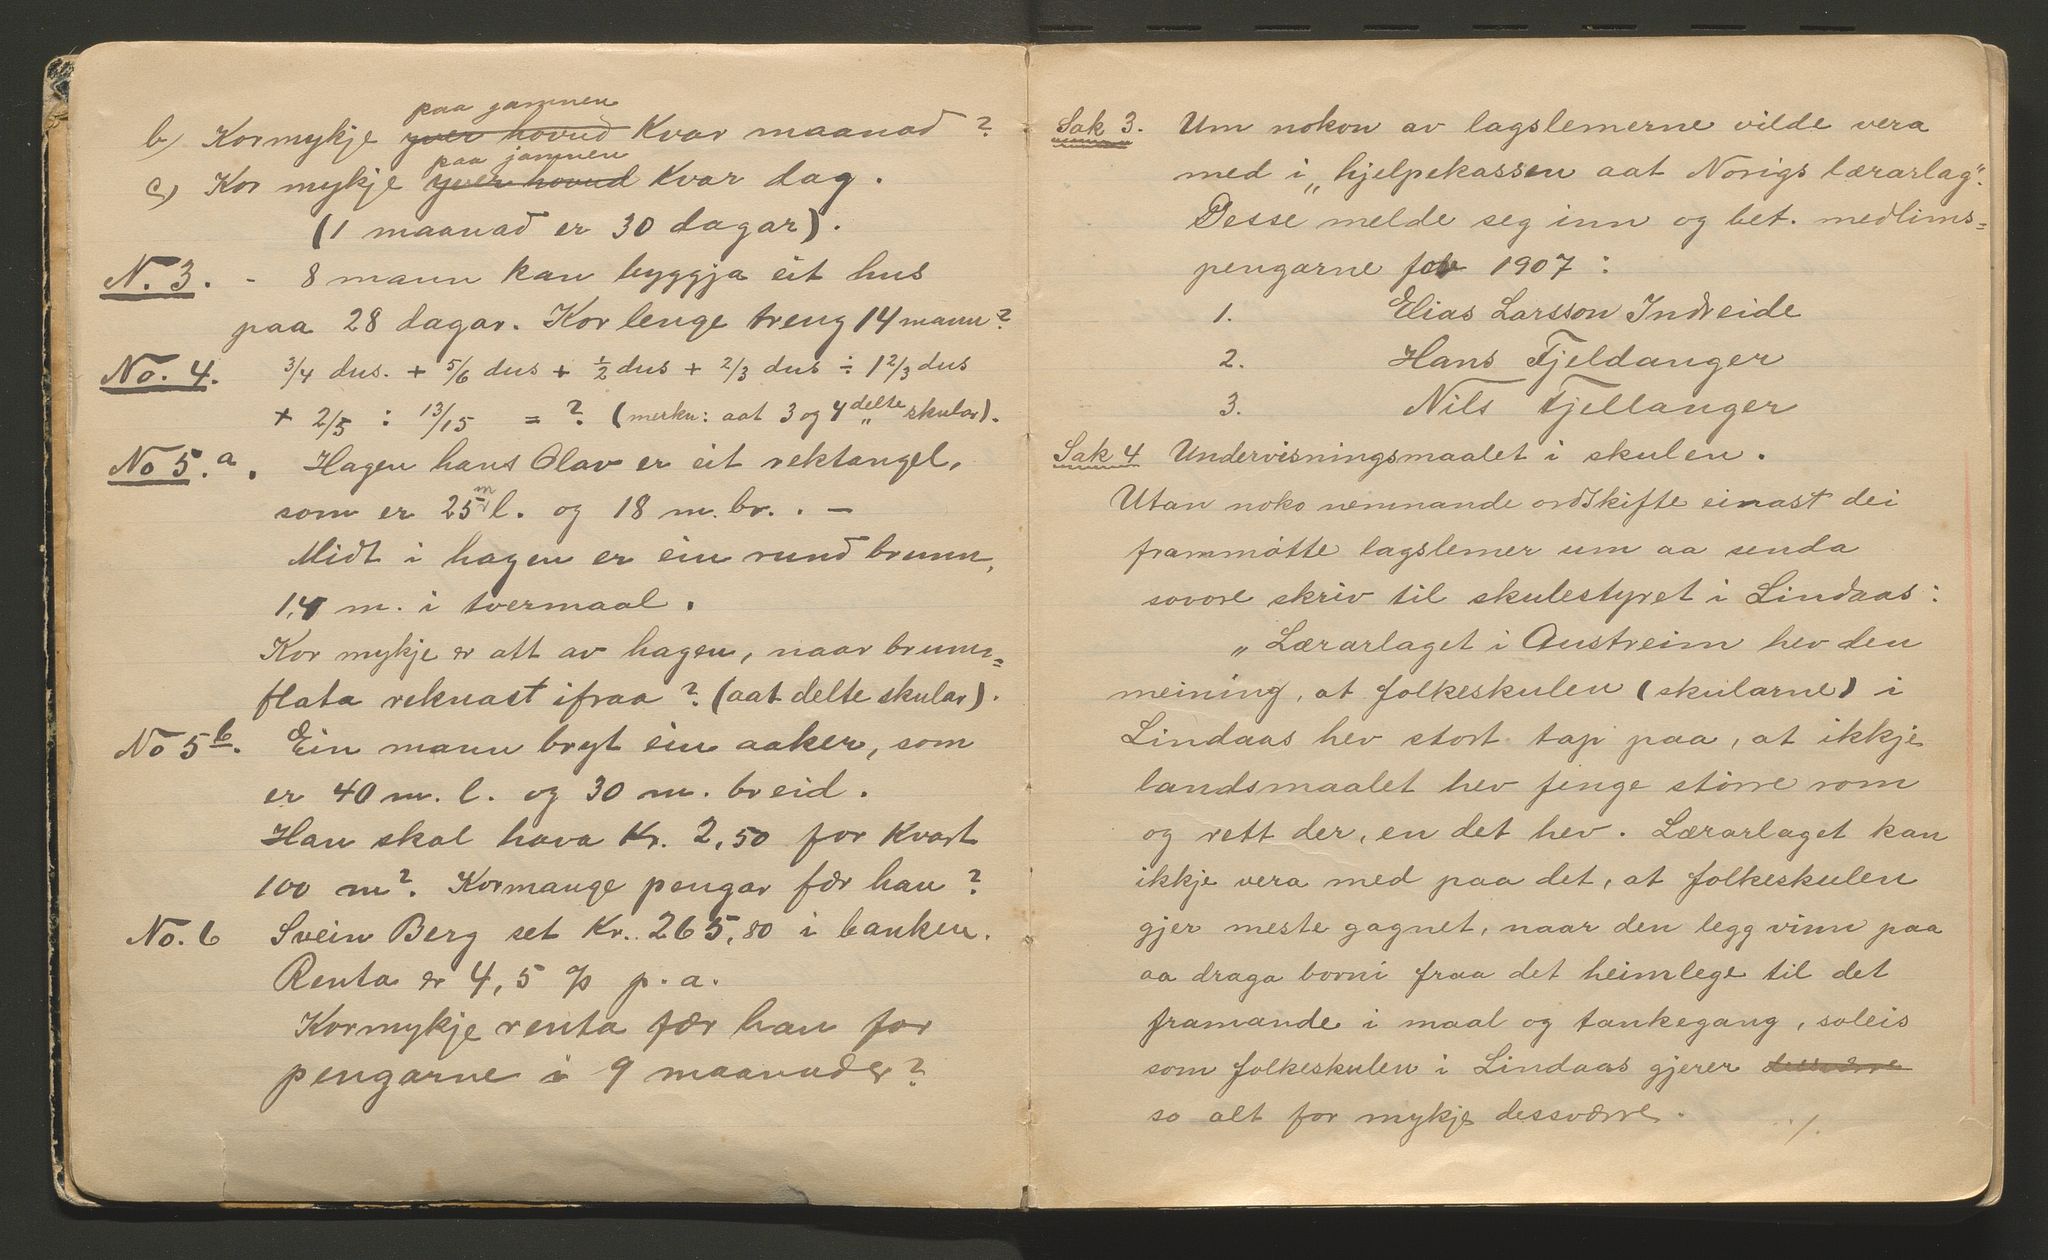 paa jamnen
b) Kormykje yver hovud kvar maanad?
paa jamnen
c) Kor mykje yver hovud kvar dag.
(1 maanad er 30 dagar).
N. 3. - 8 mann kan byggja eit hus
paa 28 dagar. Kor lenge treng 14 mann?
No. 4. 3/4 dus. + 5/6 dus + 1/2 dus + 2/3 dus ÷ 1 2/3 dus
+ 2/5 : 13/15 = ? (merkn: aat 3 og 4 delte skular).
No 5.a. Hagen hans Olav er eit rektangel,
som er 25 m l. og 18 m. br. . —
Midt i hagen er ein rund brunn,
1,4 m. i tvermaal.
Kor mykje er att av hagen, naar brunn=
flata reknast ifraa? (aat delte skular).
No 5b. Ein mann bryt ein aaker, som
er 40 m. l. og 30 m. breid.
Han skal hava Kr. 2,50 for kvart
100 m². Kormange pengar fær han?
No. 6 Svein Berg set Kr. 265,80 i banken.
Renta er 4,5 % p. a.
Kormykje renta fær han for
pengarne i 9 maanader?
Sak 3. Um nokon av lagslemerne vilde vera
med i „hjelpekassen aat Norigs lærarlag".
Desse melde seg inn og bet. medlims=
pengarne for 1907:
1. Elias Larsson Indreide
2. Hans Fjeldanger
3. Nils Fjellanger
Sak 4 Undervisningsmaalet i skulen.
Utan noko nemnande ordskifte einast dei
frammøtte lagslemer um aa senda
sovore skriv til skulestyret i Lindaas:
„Lærarlaget i Austreim hev den
meining, at folkeskulen (skularne) i
Lindaas hev stort tap paa, at ikkje
landsmaalet hev fenge større rom
og rett der, en det hev. Lærarlaget kan
ikkje vera med paa det, at folkeskulen
gjer meste gagnet, naar den legg vinn paa
aa draga borni fraa det heimlege til det
framande i maal og tankegang, soleis
som folkeskulen i Lindaas gjerer dessværre
so alt for mykje dessværre.
./.